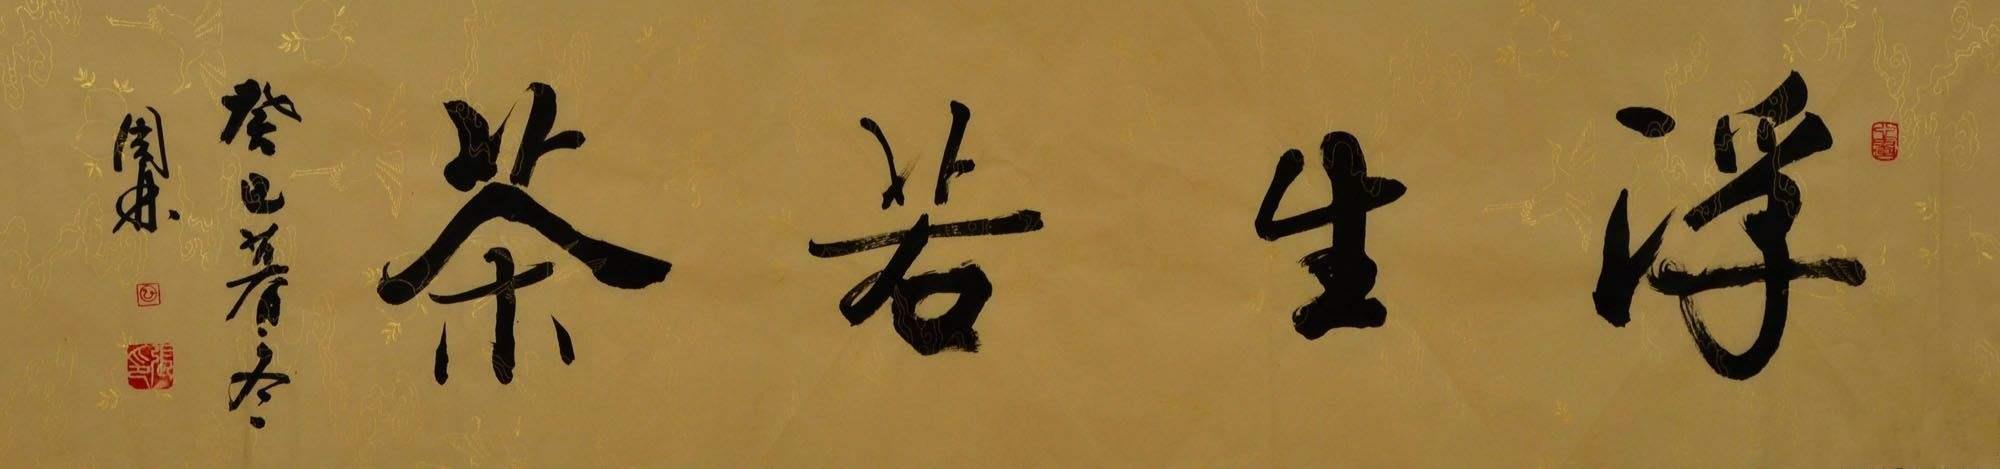 浮生若茶
癸巳暮冬
国林